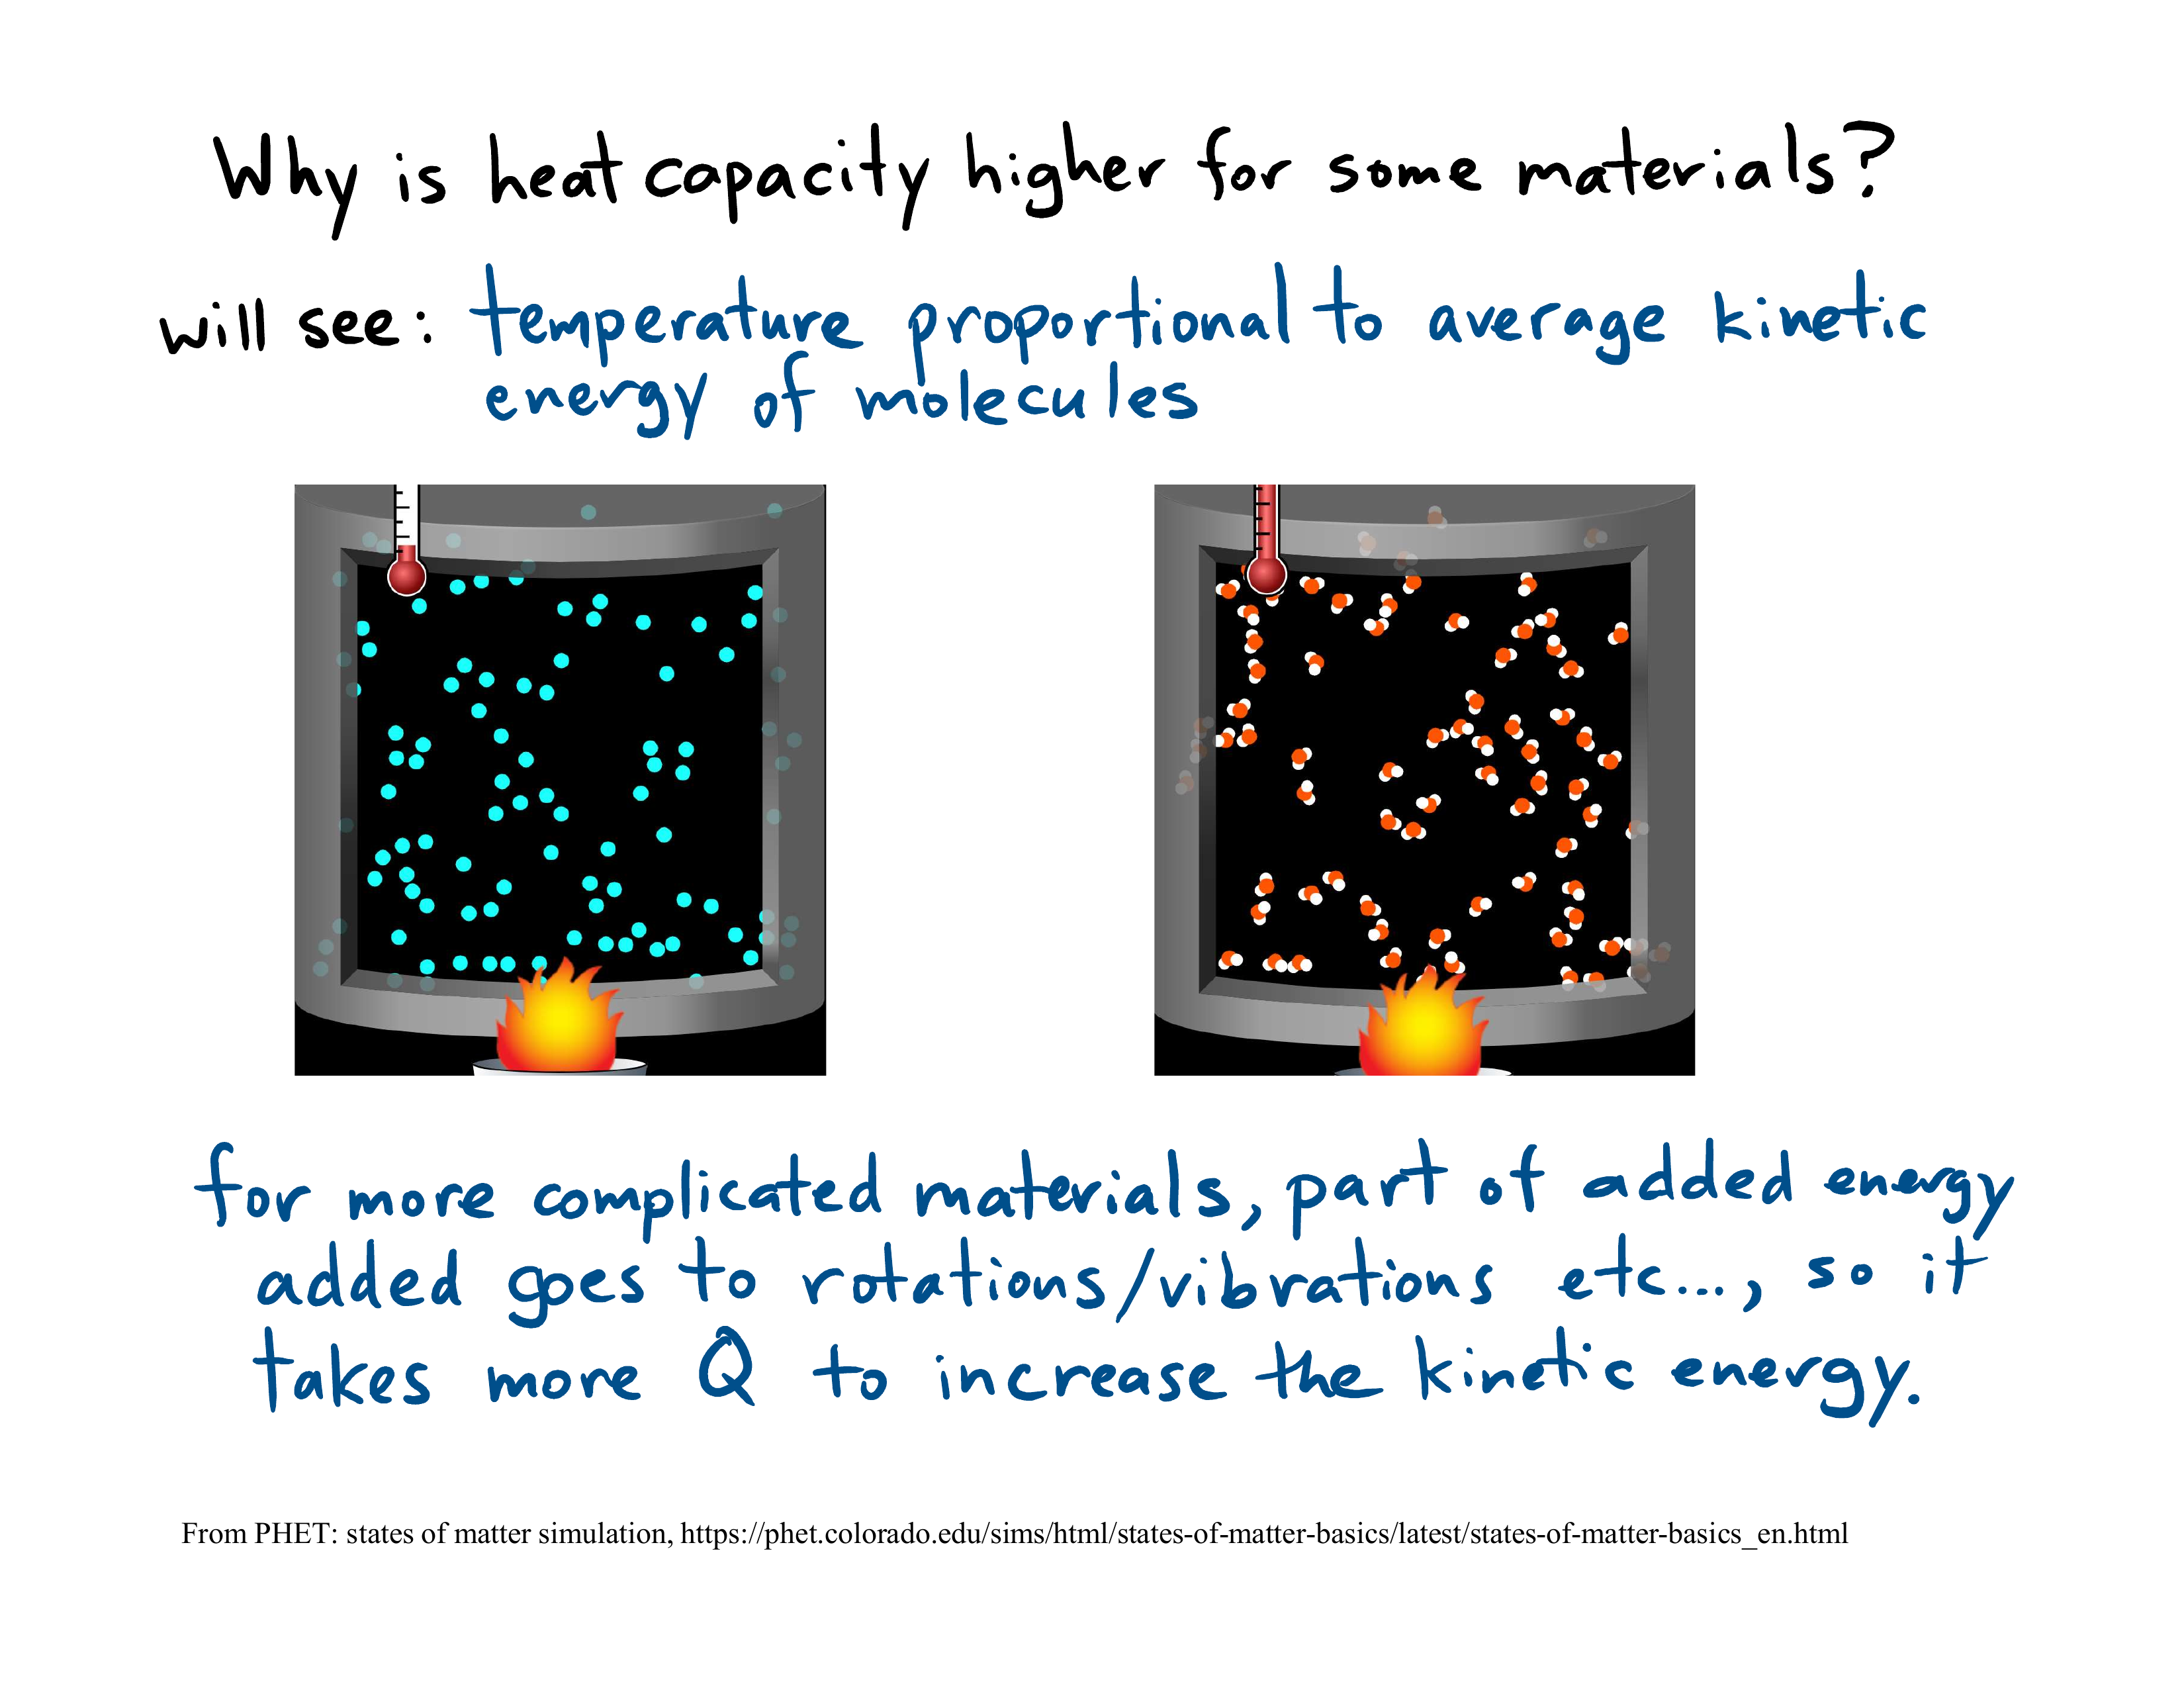 Why is heat capacity higher for some materials?
will see: temperature proportional to average kinetic
energy of molecules
for more complicated materials, part of added energy
added goes to rotations/vibrations etc..., so it
takes more Q to increase the kinetic energy.
From PHET: states of matter simulation, https://phet.colorado.edu/sims/html/states-of-matter-basics/latest/states-of-matter-basics_en.html